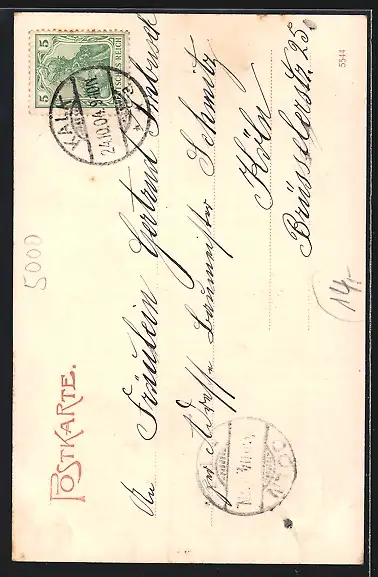 POSTKARTE.
5
5
DEUTSCHES REICH
KALK
24.10.04
An Fräulein Gertrud
per Adresse Baumeister Schmitz
Köln
Brüsselerstr. 25
5000
14,-
5544
CÖLN